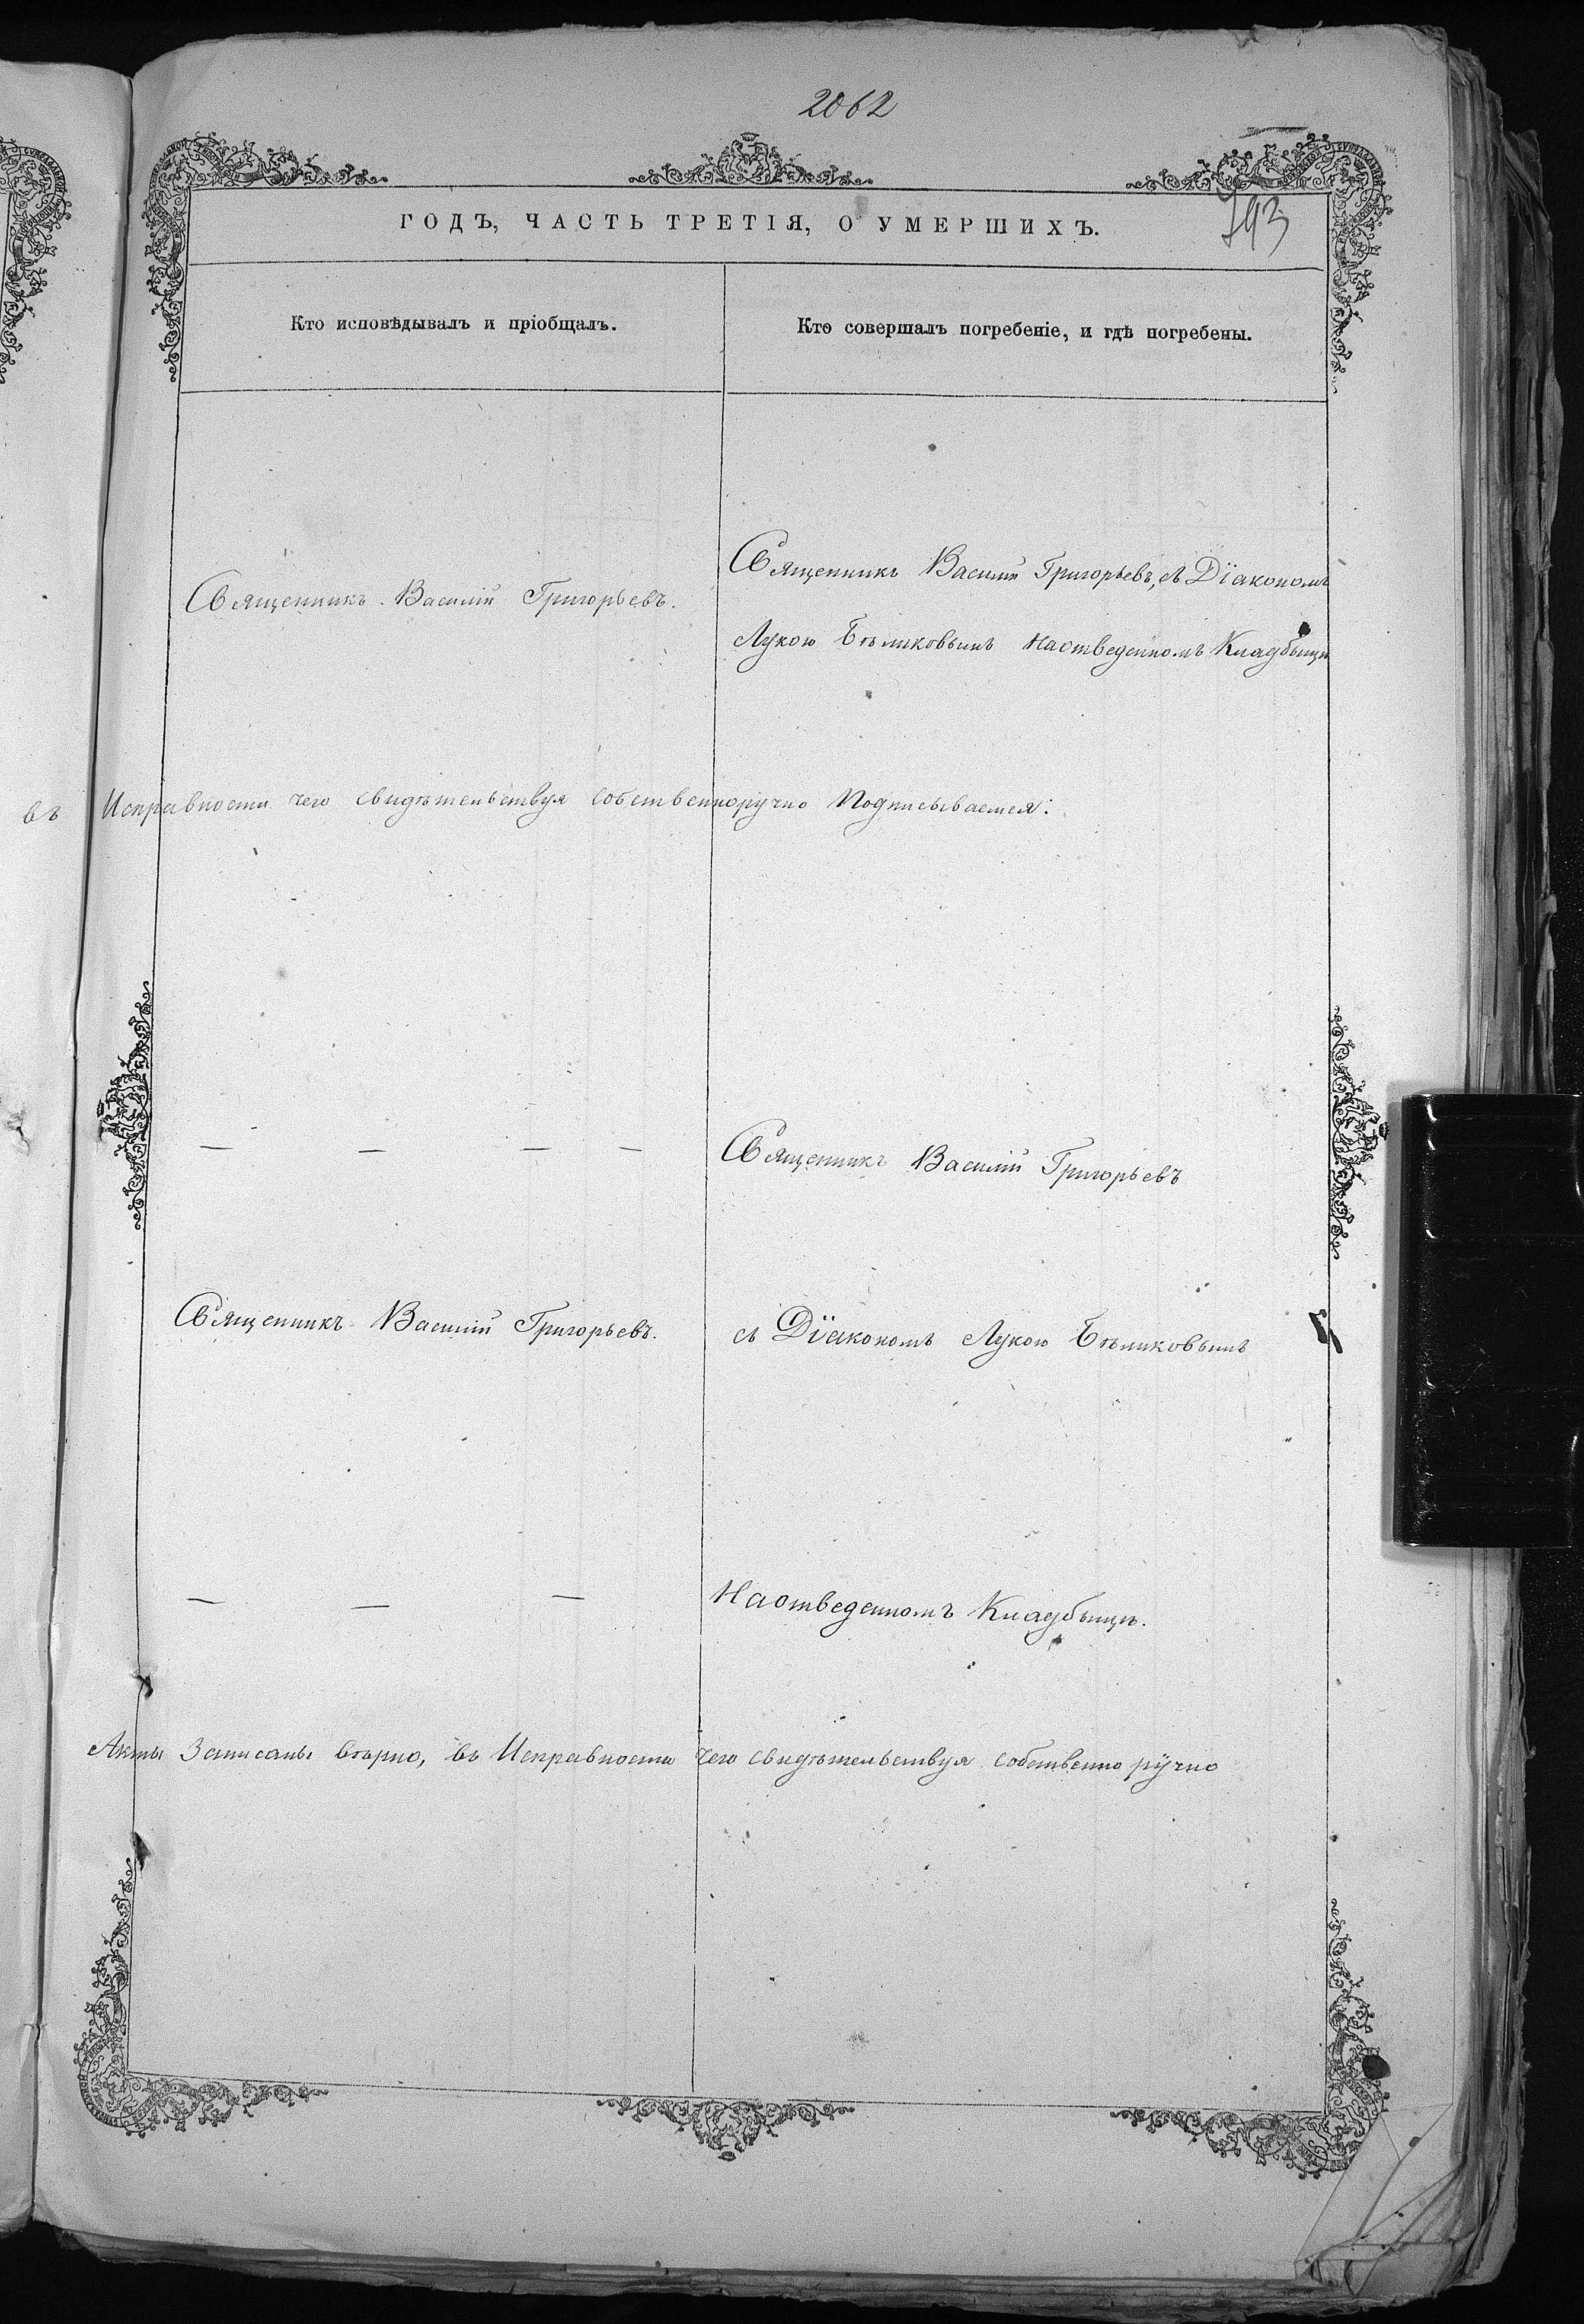 2062
793
ГОДЪ, ЧАСТЬ ТРЕТІЯ, О УМЕРШИХЪ.
Кто исповѣдывалъ и пріобщалъ.
Кто совершалъ погребеніе, и гдѣ погребены.
Священникъ Василій Григорьевъ.
Священникъ Василій Григорьевъ, съ Діакономъ
Лукою Бѣликовымъ Наотведенномъ Кладбыщѣ
въ Исправности чего свидѣтельствуя собственноручно Подписываемся:
— — — —
Священникъ Василій Григорьевъ
Священникъ Василій Григорьевъ.
съ Діакономъ Лукою Бѣликовымъ
— — —
Наотведенномъ Кладбыщѣ.
Акты Записаны вѣрно, въ Исправности чего свидѣтельствуя собственно ручно